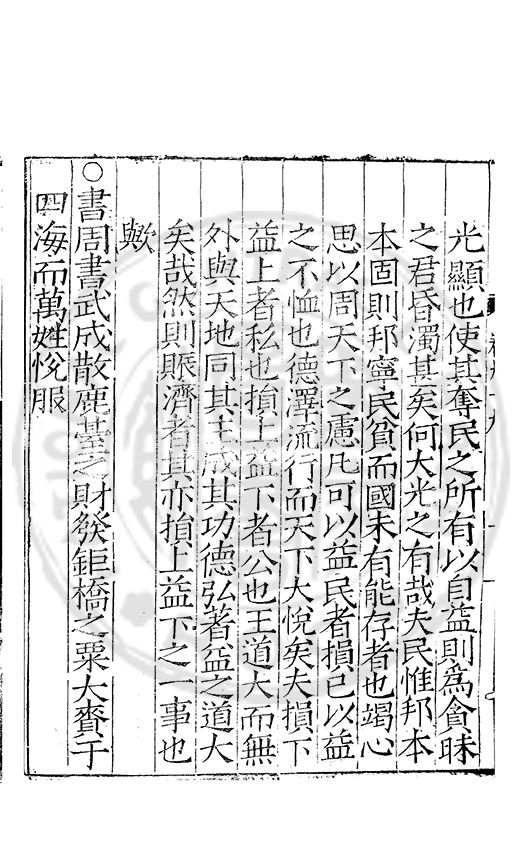 光顯也使其奪民之所有以自益則爲貪昧
之君昏濁甚矣何大光之有哉夫民惟邦本
本固則邦寧民貧而國未有能存者也竭心
思以周天下之慮凡可以益民者損己以益
之不恤也德澤流行而天下大悅矣夫損下
益上者私也損上益下者公也王道大而無
外與天地同其生成其功德弘著益之道大
矣哉然則賑濟者其亦損上益下之一事也
歟
○書周書武成散鹿臺之財發鉅橋之粟大賚于
四海而萬姓悅服